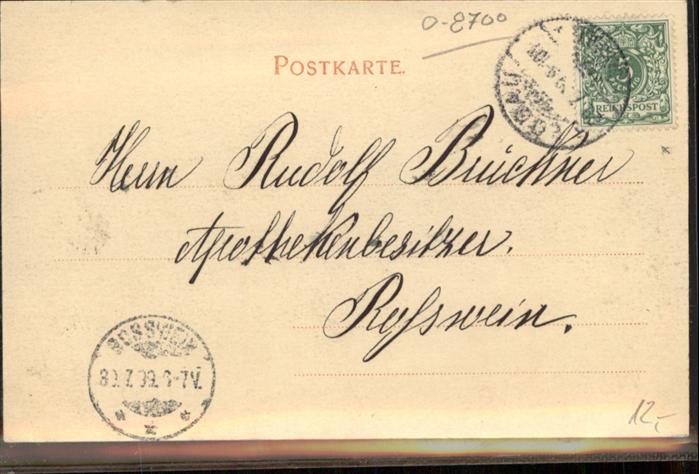 O-8700
POSTKARTE.
REICHSPOST
LÖBAU
Herrn Rudolf Bruckner
Apothekenbesitzer.
Roßwein.
ROSSWEIN
12,-